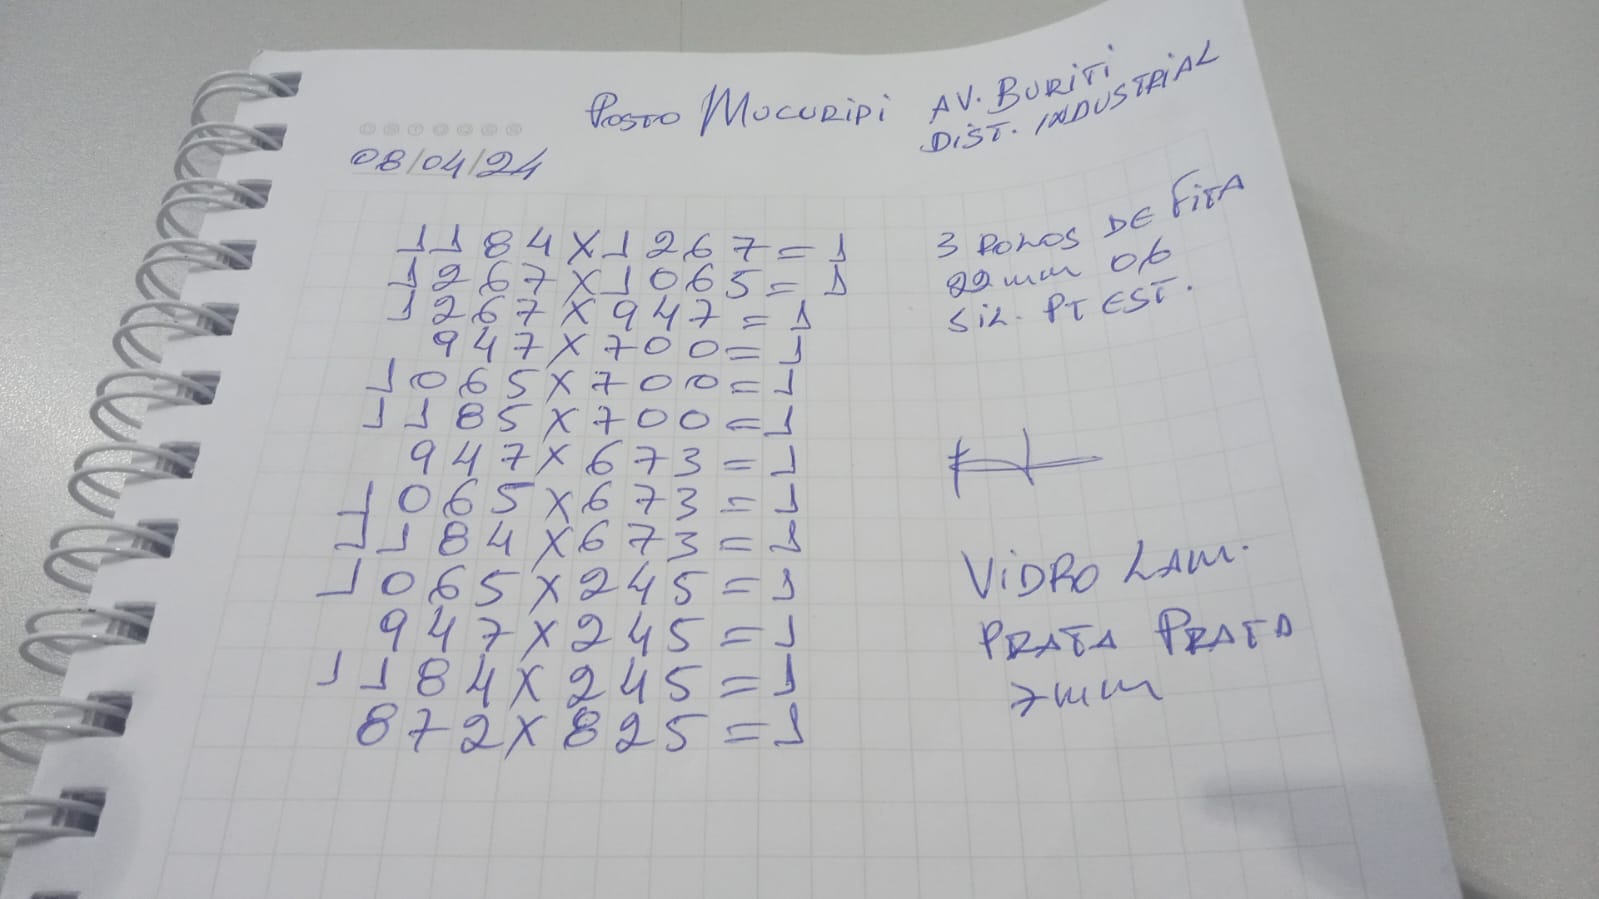 Posto Mucuripi
AV. BURITI
DIST. INDUSTRIAL
08/04/24
1184 X 1267 = 1
1267 X 1065 = 1
1267 X 947 = 1
947 X 700 = 1
1065 X 700 = 1
1185 X 700 = 1
947 X 673 = 1
1065 X 673 = 1
1184 X 673 = 1
1065 X 245 = 1
947 X 245 = 1
1184 X 245 = 1
872 X 825 = 1
3 ROLOS DE FITA
22 mm 06
SIL. PT EST.
VIDRO LAM.
PRATA PRATA
7mm